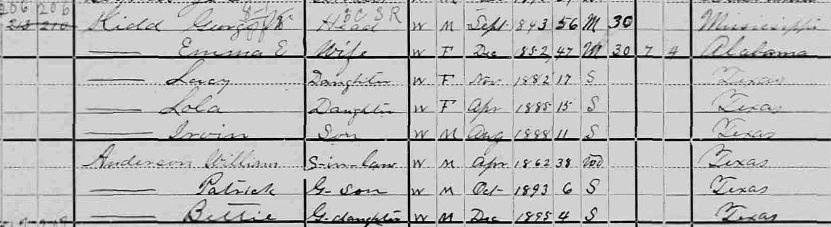 206 206 Kidd George Head W M Sept 1843 56 M 30 Mississippi
—— Emma E Wife W F Dec 1852 47 M 30 7 4 Alabama
—— Lucy Daughter W F Nov 1882 17 S Texas
—— Lola Daughter W F Apr 1885 15 S Texas
—— Irvin Son W M Aug 1888 11 S Texas
Anderson William S-in-law W M Apr 1862 38 Wd Texas
—— Patrick G-son W M Oct 1893 6 S Texas
—— Bettie G-daughter W M Dec 1895 4 S Texas